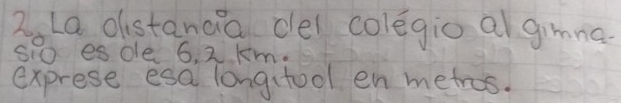 2. La distancia del colégio al gimna-
sio es de 6,2 km.
exprese esa longitool en metros.